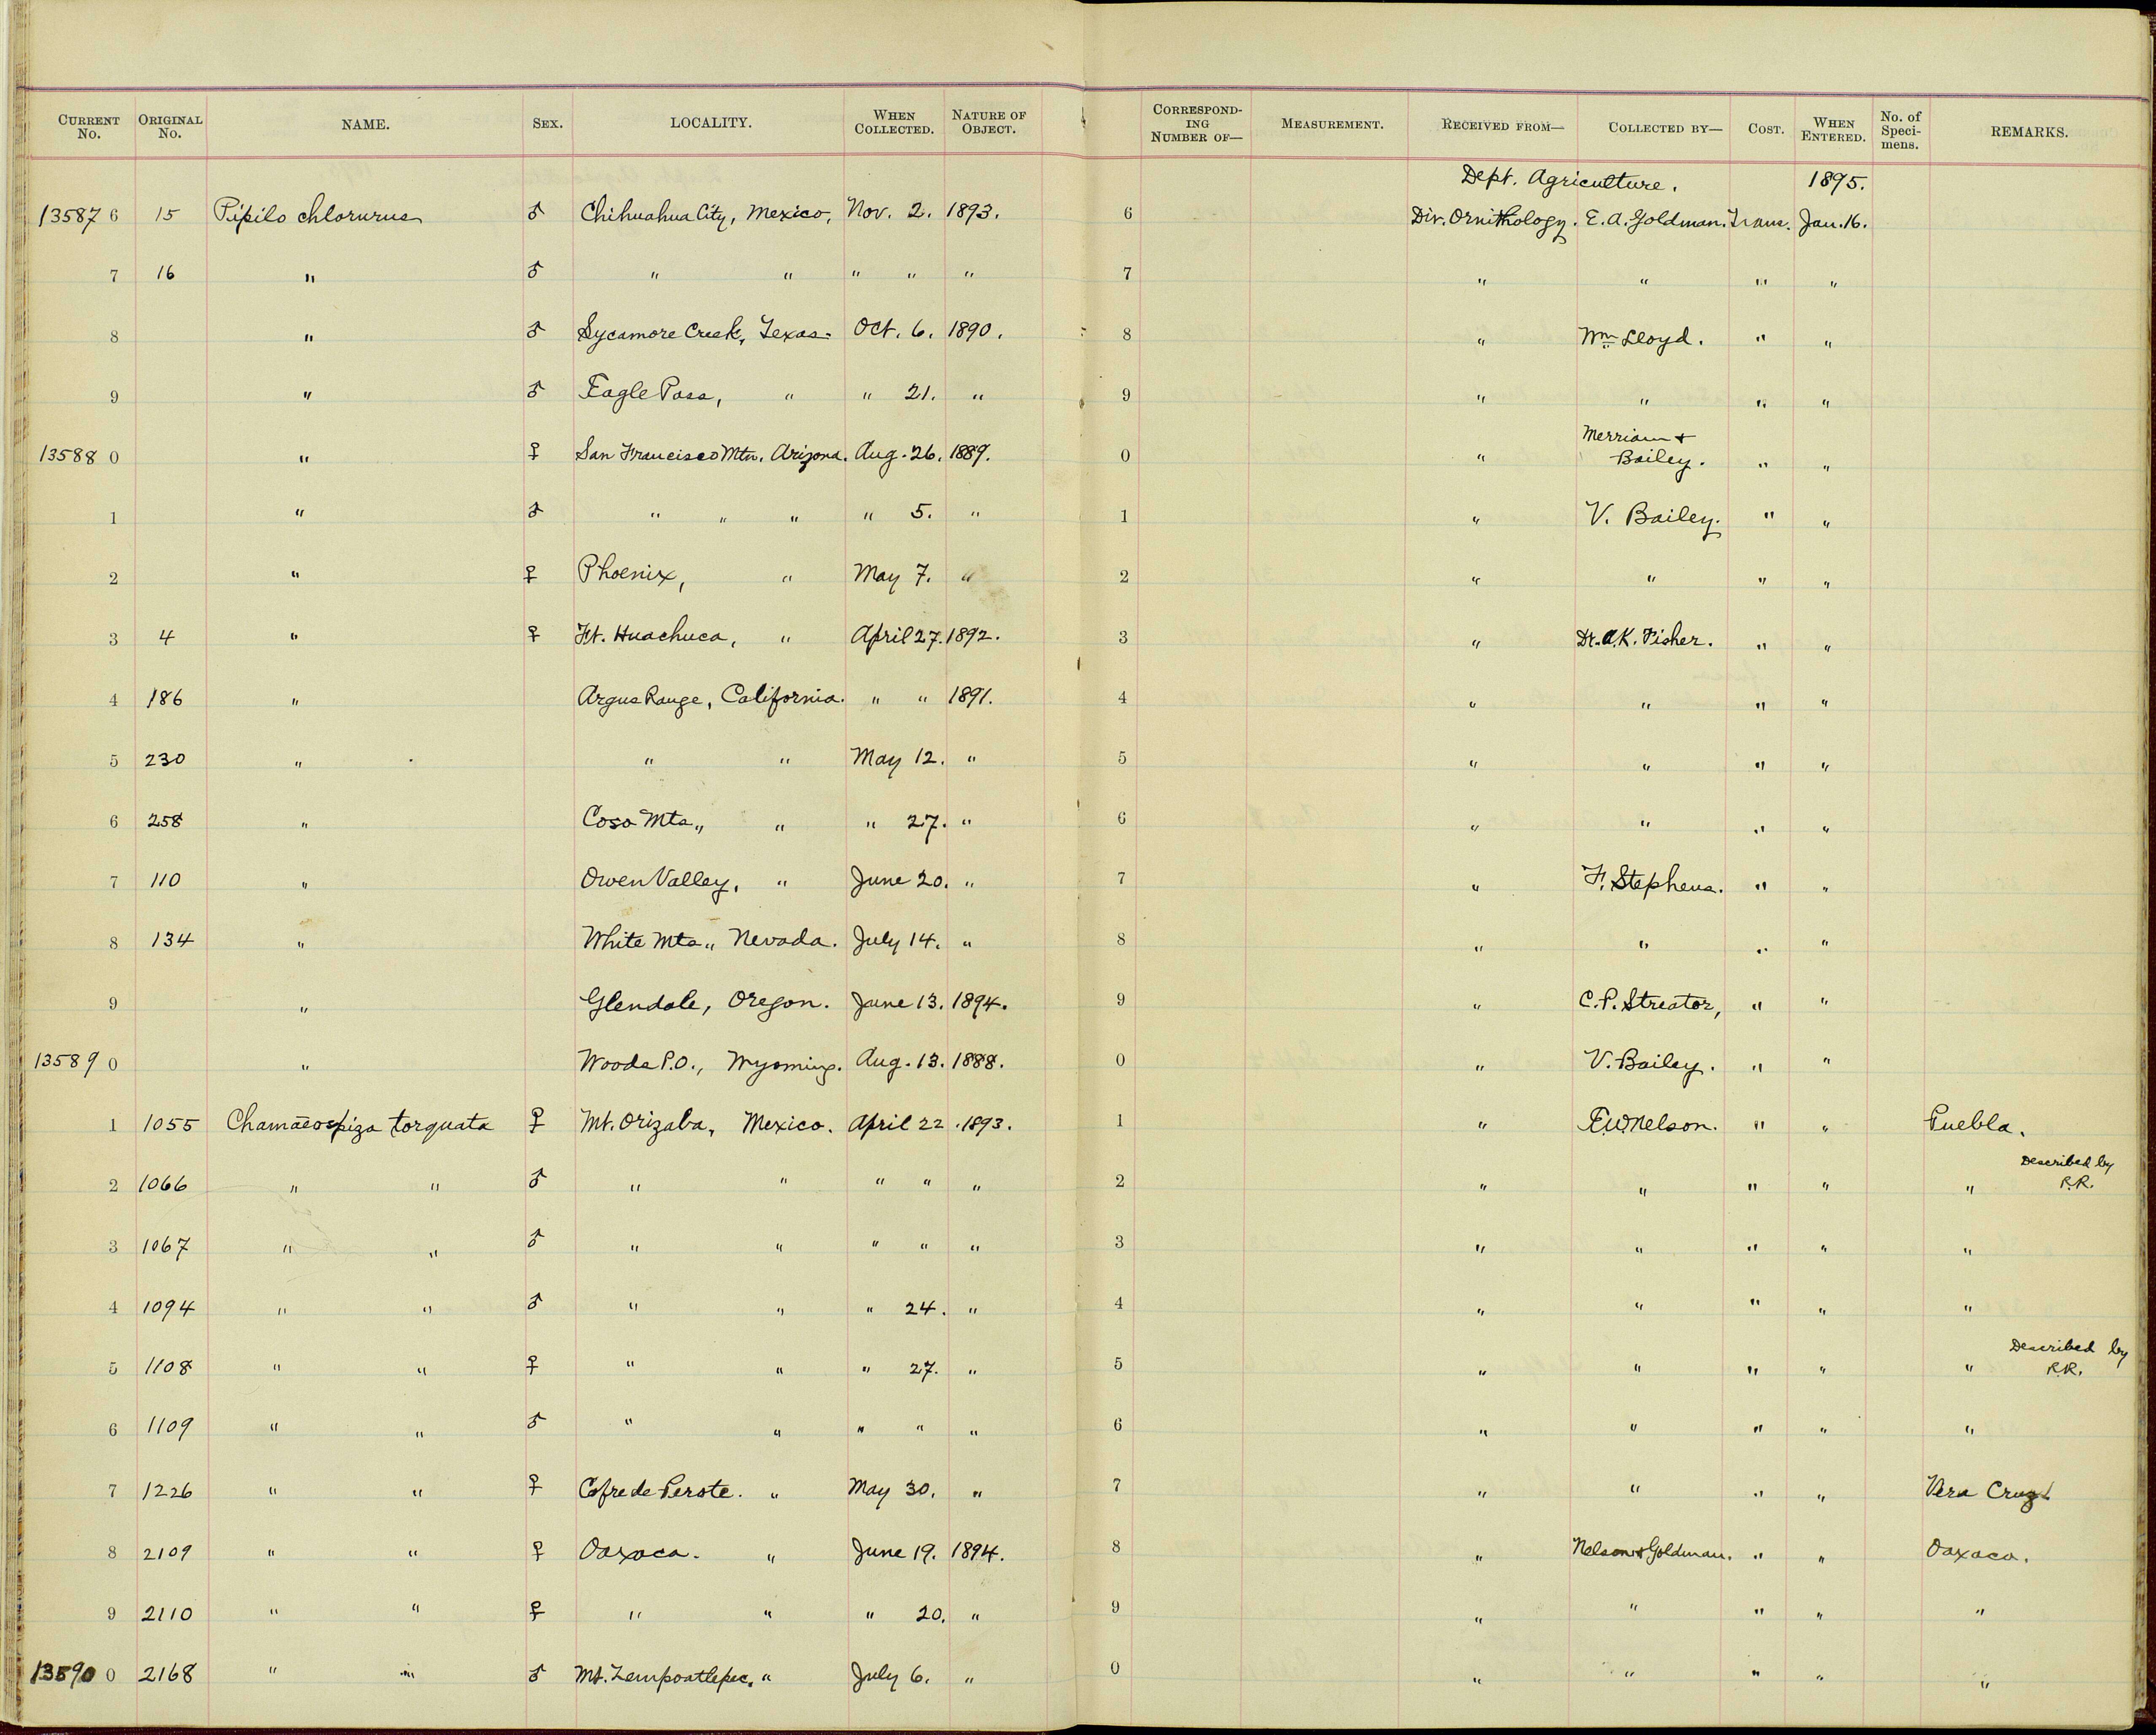 CURRENT No. ORIGINAL No. NAME. SEX. LOCALITY. WHEN COLLECTED. NATURE OF OBJECT. CORRESPONDING NUMBER OF— MEASUREMENT. RECEIVED FROM— COLLECTED BY— COST. WHEN ENTERED. No. of Specimens. REMARKS.
Dept. Agriculture. 1895.
13587 6 15 Pipilo chlorurus ♂ Chihuahua City, Mexico, Nov. 2. 1893. 6 Div. Ornithology. E. A. Goldman. Trans. Jan. 16.
7 16 " ♂ " " " " " 7 " " " "
8 " ♂ Sycamore Creek, Texas. Oct. 6. 1890. 8 " Wm Lloyd. " "
9 " ♂ Eagle Pass, " " 21. " 9 " " " "
Merriam +
13588 0 " ♀ San Francisco Mtn. Arizona. Aug. 26. 1889. 0 " Bailey. " "
1 " ♂ " " " " 5. " 1 " V. Bailey. " "
2 " ♀ Phoenix, " May 7. " 2 " " " "
3 4 " ♀ Ft. Huachuca, " April 27. 1892. 3 " Dr. A.K. Fisher. " "
4 186 " Argus Range, California. " " 1891. 4 " " " "
5 230 " " " May 12. " 5 " " " "
6 258 " Coso Mts., " " 27. " 6 " " " "
7 110 " Owen Valley, " June 20. " 7 " F. Stephens. " "
8 134 " White Mts., Nevada. July 14. " 8 " " " "
9 " Glendale, Oregon. June 13. 1894. 9 " C. P. Streator, " "
13589 0 " Woods P.O., Wyoming. Aug. 13. 1888. 0 " V. Bailey. " "
1 1055 Chamaeospiza torquata ♀ Mt. Orizaba, Mexico. April 22. 1893. 1 " E.W. Nelson. " " Puebla.
Described by
2 1066 " " ♂ " " " " " 2 " " " " " R.R.
3 1067 " " ♂ " " " " " 3 " " " " "
4 1094 " " ♂ " " " 24. " 4 " " " " "
Described by
5 1108 " " ♀ " " " 27. " 5 " " " " " R.R.
6 1109 " " ♂ " " " " " 6 " " " " "
7 1226 " " ♀ Cofre de Perote. " May 30. " 7 " " " " Vera Cruz
8 2109 " " ♀ Oaxaca. " June 19. 1894. 8 " Nelson & Goldman. " " Oaxaca.
9 2110 " " ♀ " " " 20. " 9 " " " " "
13590 0 2168 " " ♂ Mt. Zempoaltepec, " July 6. " 0 " " " " "